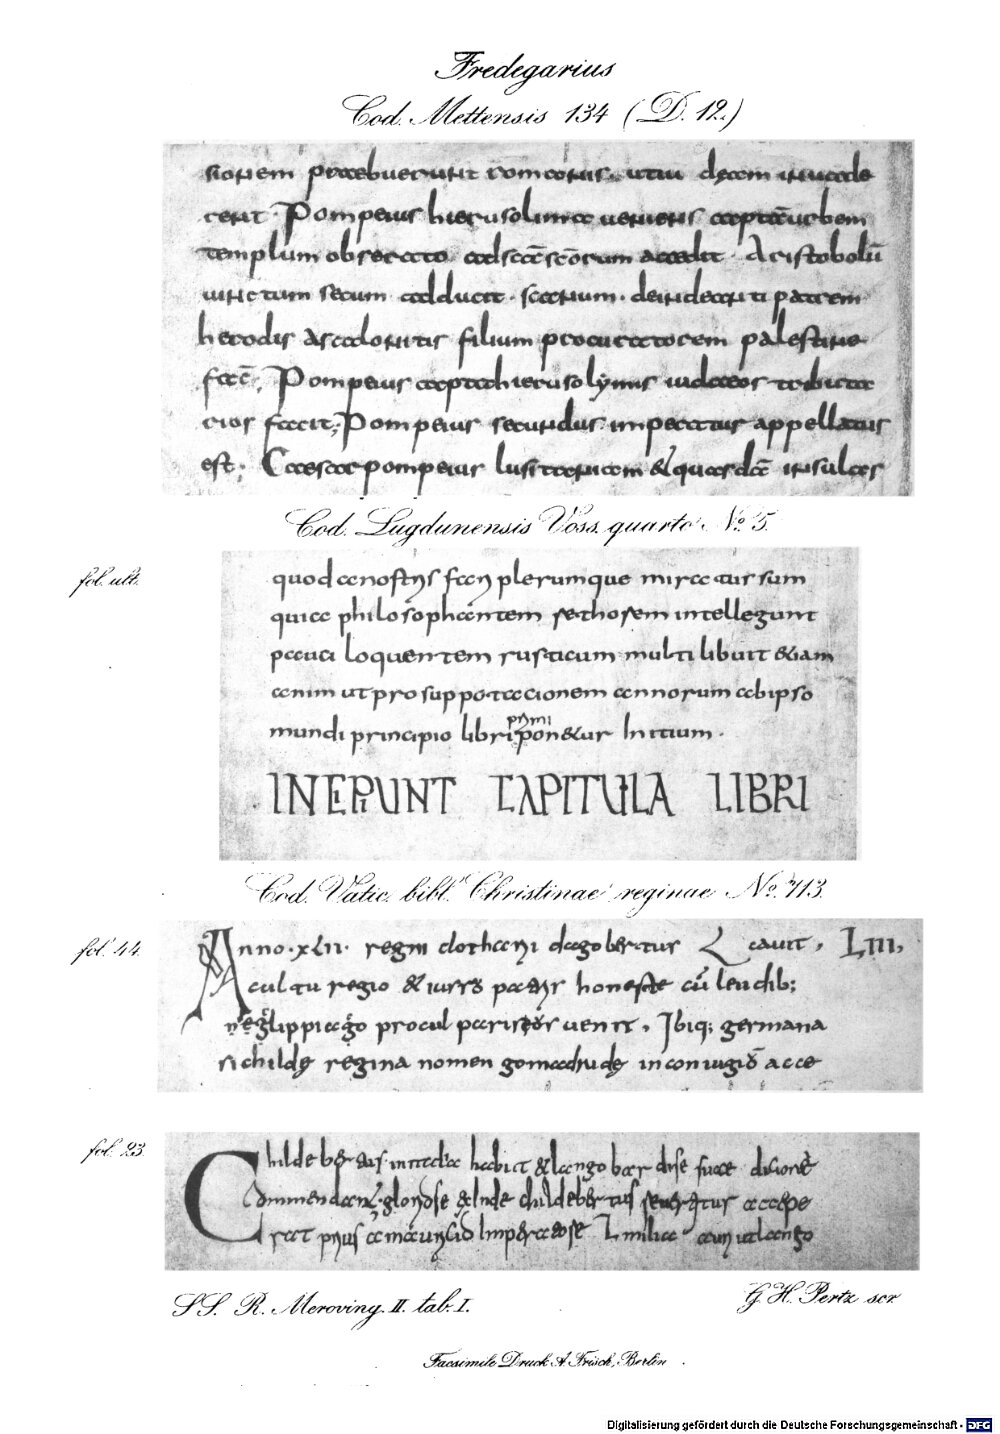 Fredegarius
Cod. Mettensis 134 (D. 12.)
sionem praebuerunt romanus. utiu decem in iudae
rent. Pompeius hierusolimae ueniens captā urbem
templum obserato ad sc̄ā sc̄ōrum accedit. Aristobolū
uinctum secum adducit. sacrium. deindeantipatrem
herodis ascalonitis filium procuratorem palestine
fac̄. Pompeius capta hierusolymis iudaeos tributa
rios facit; Pompeius secundus imperatur appellatus
est. Caesar pompeius lusitaniam & quasdā insulas
Cod. Lugdunensis Voss. quarto No. 5.
fol. ult.
quod a nostris facn plerumque miratur sum
quia philosophantem rethorem intellegunt
pauci loquentem rusticum multi libuit &iam
anim ut pro suppotacionem annorum ab ipso
mundi principio libri primi pon&ur Initium.
INCIPIUNT CAPITULA LIBRI
Cod. Vatic. bibl. Christinae reginae No. 713.
fol. 44.
Anno. XLII. regni clotharii dagobertus cauit, LIII,
cultu regio & iusso patris honeste cū leudib;
procul parisius uenit, Ibiq; germana
sichilde regina nomen gomadrude in coniugiō acce
fol. 23.
Childebertus italia habuit & langobar dise suae dicione
gloriose & inde childebertus reuertitur accepe
rat prius a mauricio Imperatore milia aurj ut lango
SS. R. Meroving. II. tab. I.
G. H. Pertz scr.
Facsimile Druck A. Frisch, Berlin.
Digitalisierung gefördert durch die Deutsche Forschungsgemeinschaft - DFG